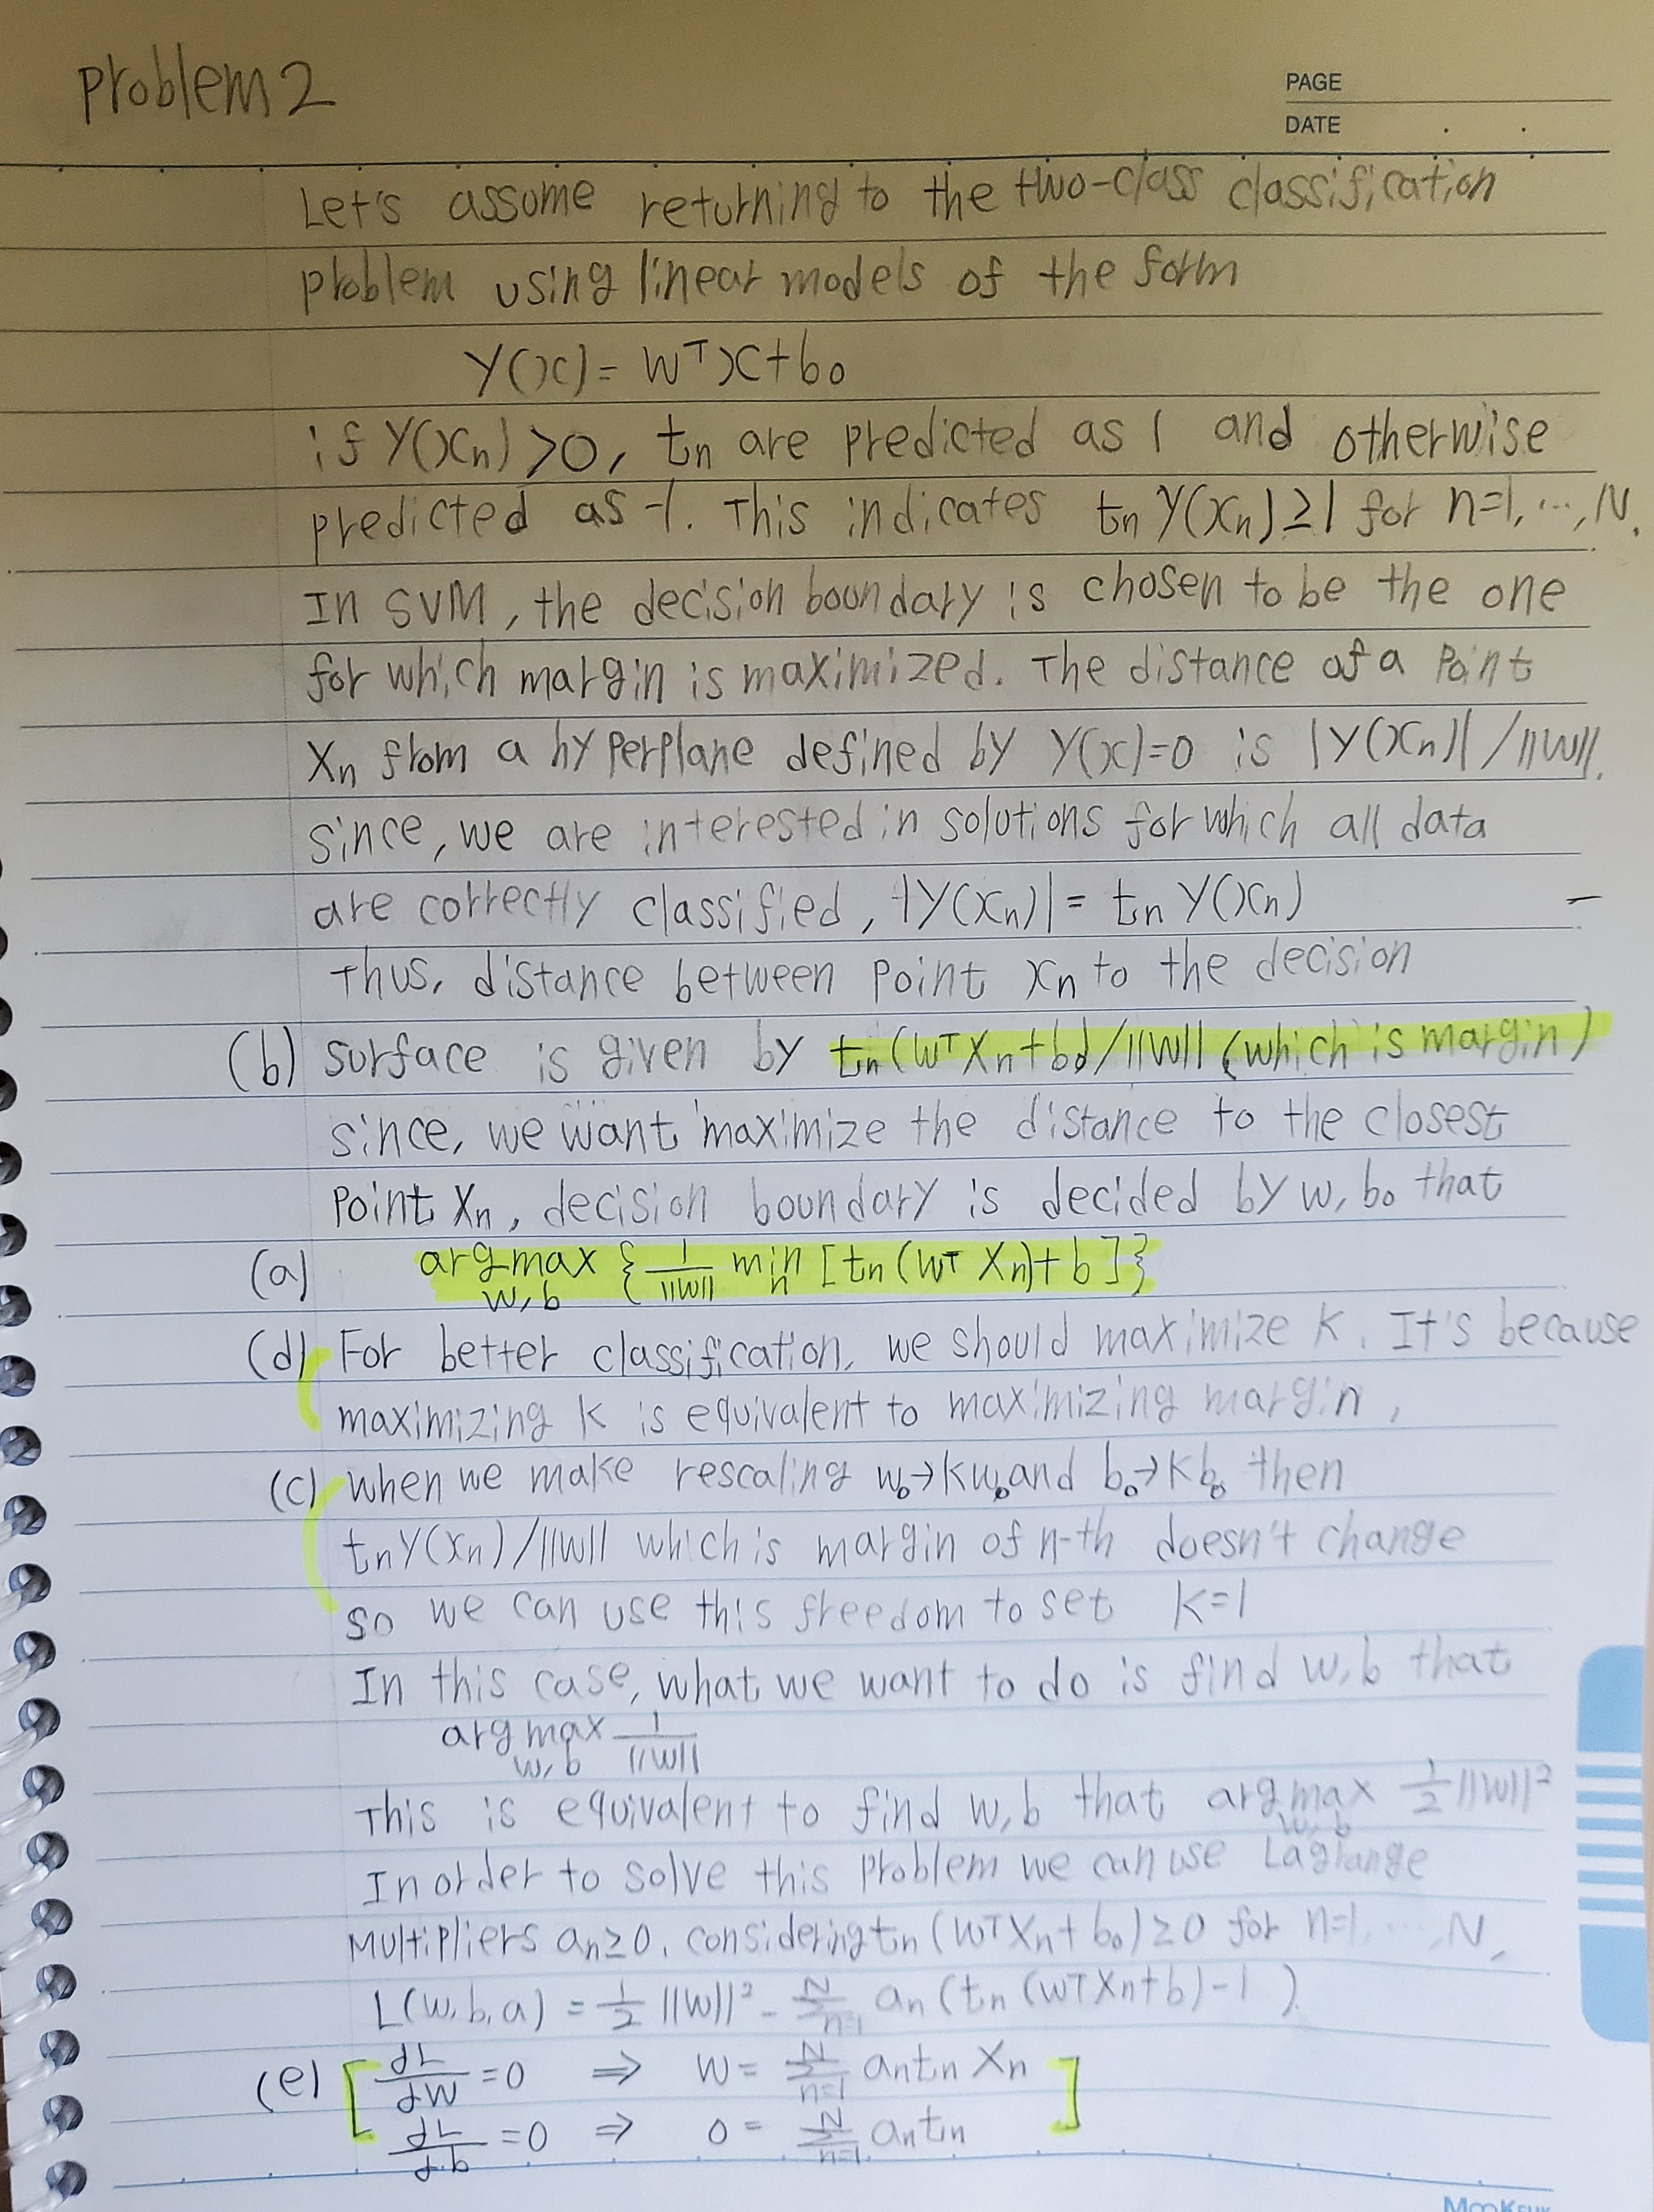 Problem 2
PAGE
DATE
Let's assume returning to the two-class classification
problem using linear models of the form
Y(x) = wᵀx + b₀
if Y(xₙ) > 0, tₙ are predicted as 1 and otherwise
predicted as -1. This indicates tₙ Y(xₙ) ≥ 1 for n=1, ..., N.
In SVM, the decision boundary is chosen to be the one
for which margin is maximized. The distance of a point
Xₙ from a hyperplane defined by Y(x)=0 is |Y(xₙ)| / ||w||.
since, we are interested in solutions for which all data
are correctly classified, |Y(xₙ)| = tₙ Y(xₙ)
Thus, distance between point xₙ to the decision
(b) surface is given by tₙ(wᵀxₙ+b₀)/||w|| (which is margin)
since, we want maximize the distance to the closest
point Xₙ, decision boundary is decided by w, b₀ that
(a) arg max w,b { 1/||w|| min n [tₙ (wᵀ xₙ) + b] }
(d) For better classification, we should maximize K. It's because
maximizing K is equivalent to maximizing margin,
(c) when we make rescaling w₀→Kw₀ and b₀→Kb₀ then
tₙY(xₙ)/||w|| which is margin of n-th doesn't change
so we can use this freedom to set K=1
In this case, what we want to do is find w,b that
arg max w,b 1/||w||
This is equivalent to find w,b that arg max w,b ½||w||²
In order to solve this problem we can use Lagrange
Multipliers aₙ≥0, considering tₙ(wᵀxₙ+b₀)≥0 for n=1, ..., N,
L(w,b,a) = ½||w||² - Σₙ₌₁ᴺ aₙ(tₙ(wᵀxₙ+b)-1)
(e) [ ∂L/∂w = 0 ⇒ w = Σₙ₌₁ᴺ aₙtₙxₙ ]
∂L/∂b = 0 ⇒ 0 = Σₙ₌₁ᴺ aₙtₙ